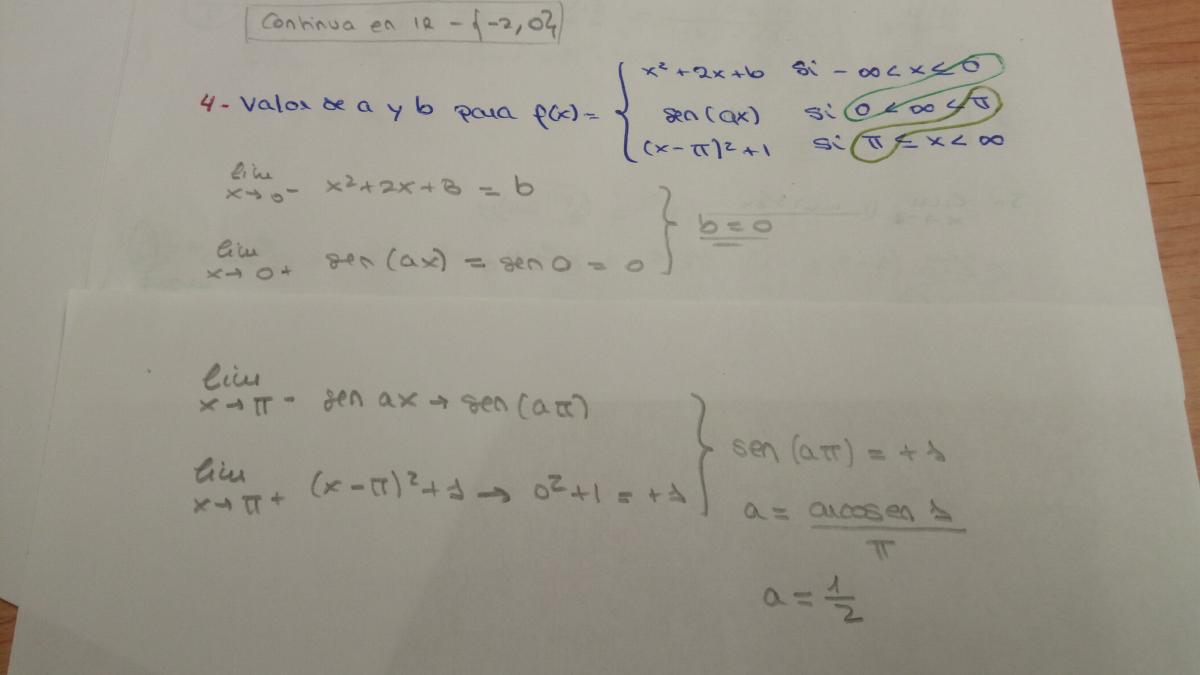 Continua en IR - {-2, 0}
4- Valor de a y b para f(x) = { x² + 2x + b si - ∞ < x < 0
sen (ax) si 0 < ∞ < π
(x - π)² + 1 si π ≤ x < ∞
lim x→0⁻ x² + 2x + B = b
b = 0
lim x→0⁺ sen (ax) = sen 0 = 0
lim x→π⁻ sen ax → sen (aπ)
sen (aπ) = +1
lim x→π⁺ (x - π)² + 1 → 0² + 1 = +1
a = arcosen 1 / π
a = 1/2